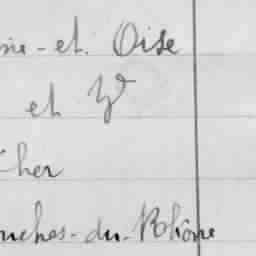 ine-et-Oise
et
Cher
uches-du-Rhône